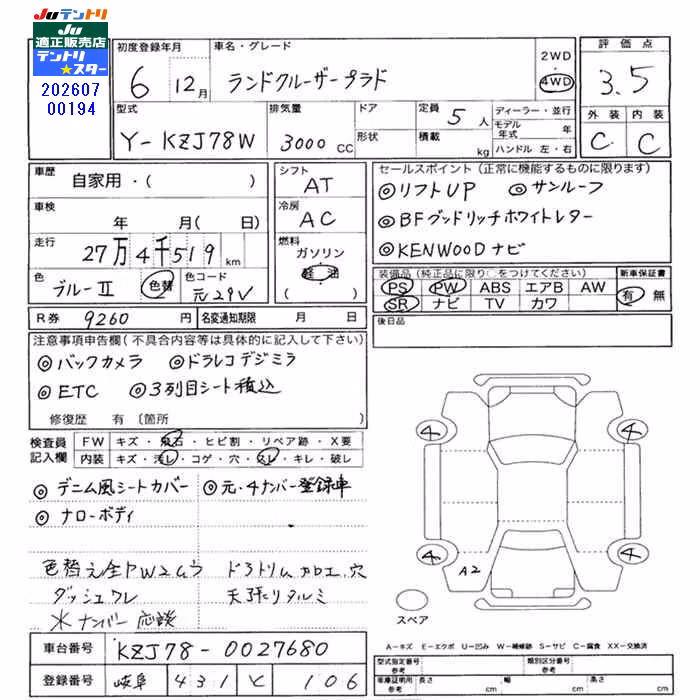 JUテントリ
JU
適正販売店
テントリ
★スター
202607
00194
初度登録年月
6 12月
車名・グレード
ランドクルーザープラド
2WD
・
4WD
評価点
3.5
外装 内装
C C
型式
Y-KZJ78W
排気量
3000 CC
ドア
形状
定員 5 人
積載 kg
ディーラー・並行
モデル年式 年
ハンドル 左・右
車歴
自家用・( )
車検
年 月( 日)
走行
27万4千519km
色
ブルーⅡ 色替
色コード
元29V
シフト
AT
冷房
AC
燃料
ガソリン
軽油
( )
セールスポイント(正常に機能するものに限ります)
◎リフトUP ◎サンルーフ
◎BFグッドリッチホワイトレター
◎KENWOODナビ
装備品(純正品に限り○をつけてください)
PS PW ABS エアB AW
SR ナビ TV カワ
新車保証書
有 無
R券 9260 円
名変通知期限 月 日
後日品
注意事項申告欄(不具合内容等は具体的に記入して下さい)
◎バックカメラ ◎ドラレコデジミラ
◎ETC ◎3列目シート積込
修復歴 有 〔箇所
検査員
記入欄
FW キズ・飛石・ヒビ割・リペア跡・X要
内装 キズ・汚レ・コゲ・穴・スレ・キレ・破レ
◎デニム風シートカバー ◎元・4ナンバー登録車
◎ナローボディ
ダッシュワレ
※ナンバー応談
4 4
4 4
A2
スペア
A-キズ E-エクボ U-凹み W-補修跡 S-サビ C-腐食 XX-交換済
車台番号 KZJ78-0027680
登録番号 岐阜 431 と 106
型式指定番号
参考
類別区分番号
参考
車庫証明用
参考
長さ cm 幅 cm 高さ cm